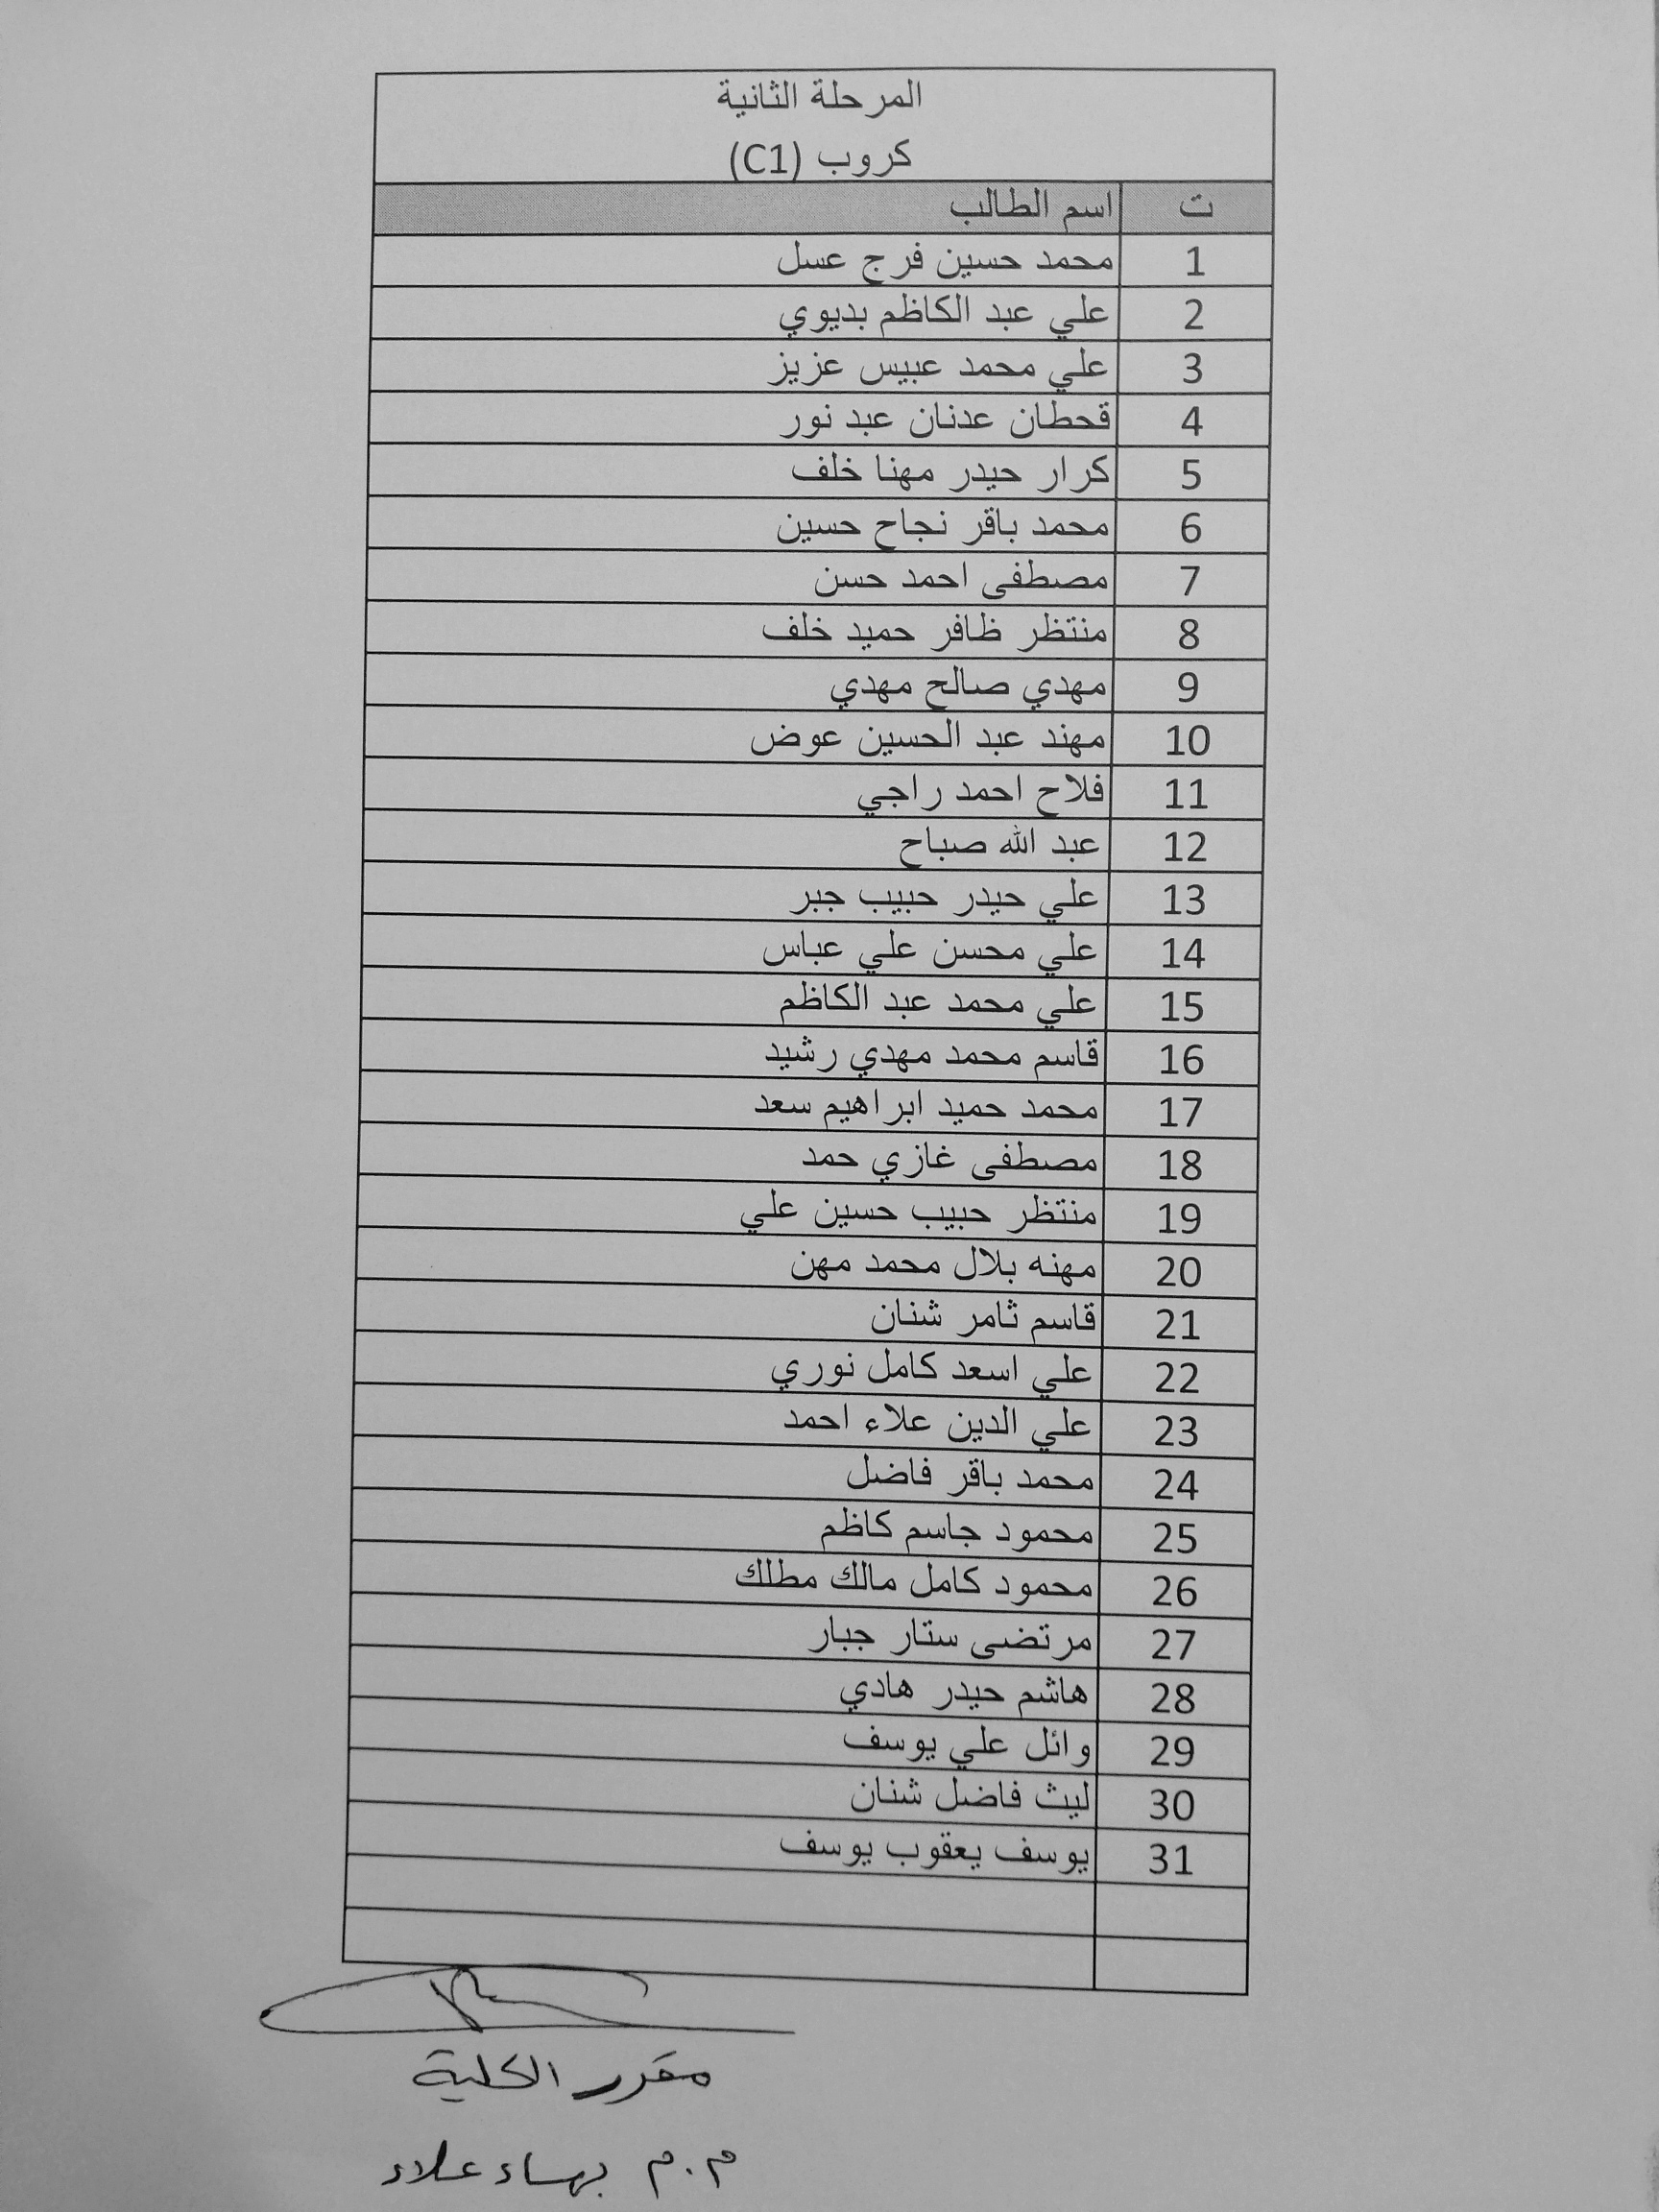 المرحلة الثانية
كروب (C1)
ت اسم الطالب
1 محمد حسين فرج عسل
2 علي عبد الكاظم بديوي
3 علي محمد عبيس عزيز
4 قحطان عدنان عبد نور
5 كرار حيدر مهنا خلف
6 محمد باقر نجاح حسين
7 مصطفى احمد حسن
8 منتظر ظافر حميد خلف
9 مهدي صالح مهدي
10 مهند عبد الحسين عوض
11 فلاح احمد راجي
12 عبد الله صباح
13 علي حيدر حبيب جبر
14 علي محسن علي عباس
15 علي محمد عبد الكاظم
16 قاسم محمد مهدي رشيد
17 محمد حميد ابراهيم سعد
18 مصطفى غازي حمد
19 منتظر حبيب حسين علي
20 مهنه بلال محمد مهن
21 قاسم ثامر شنان
22 علي اسعد كامل نوري
23 علي الدين علاء احمد
24 محمد باقر فاضل
25 محمود جاسم كاظم
26 محمود كامل مالك مطلك
27 مرتضى ستار جبار
28 هاشم حيدر هادي
29 وائل علي يوسف
30 ليث فاضل شنان
31 يوسف يعقوب يوسف
مقرر الكلية
م.م بهاء علاء